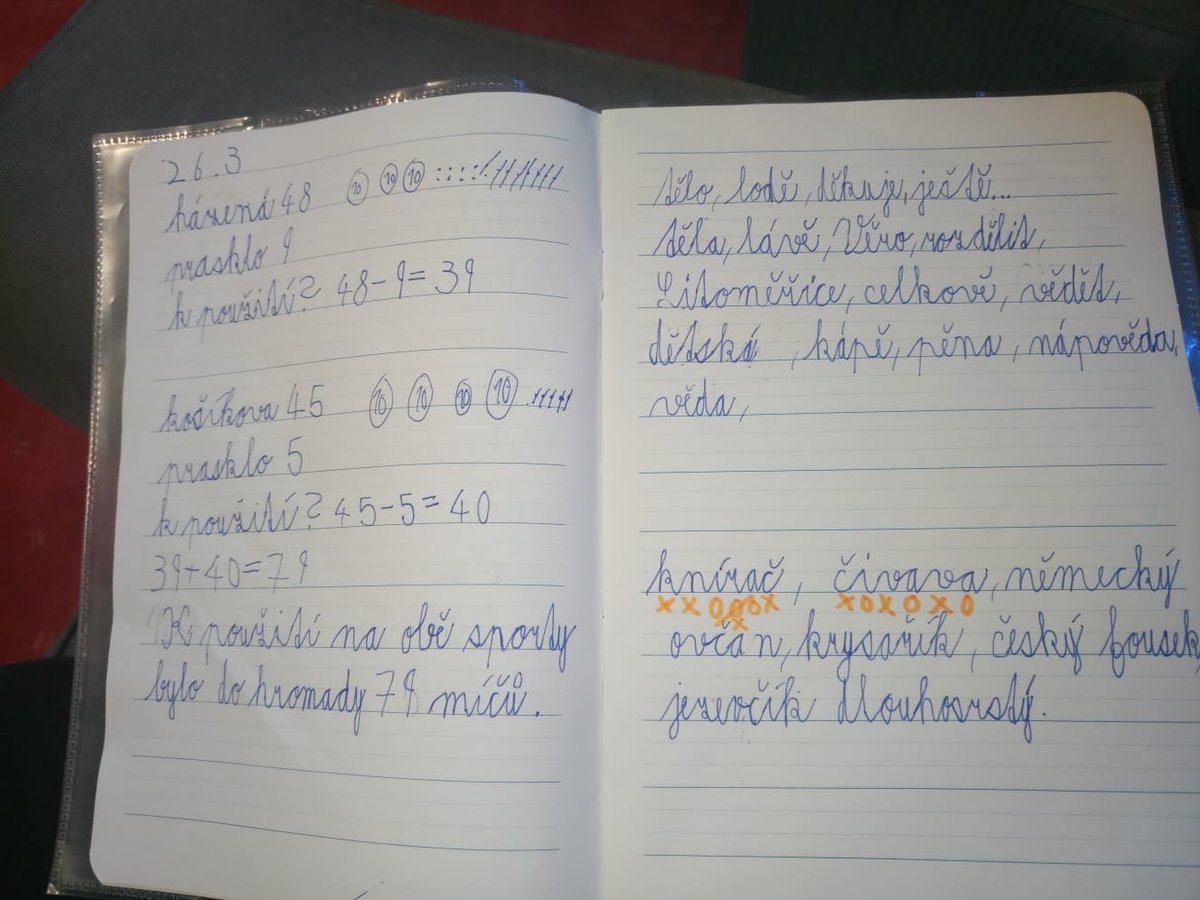 26.3
házená 48 10 10 10
prasklo 9
k použití? 48-9=39
košíkova 45 10 10 10 10
prasklo 5
k použití? 45-5=40
39+40=79
K použití na obě sporty
bylo do hromady 79 míčů.
tělo, lodě, děkuje, ještě...
těla, lávě, Věro, rozdělit,
Litoměřice, celkově, vědět,
dětská, kápě, pěna, nápověda,
věda,
knírač, čivava, německý
xxooox xoxoxo
xx
ovčán, krysařík, český fousek
jezevčík dlouhosrstý.